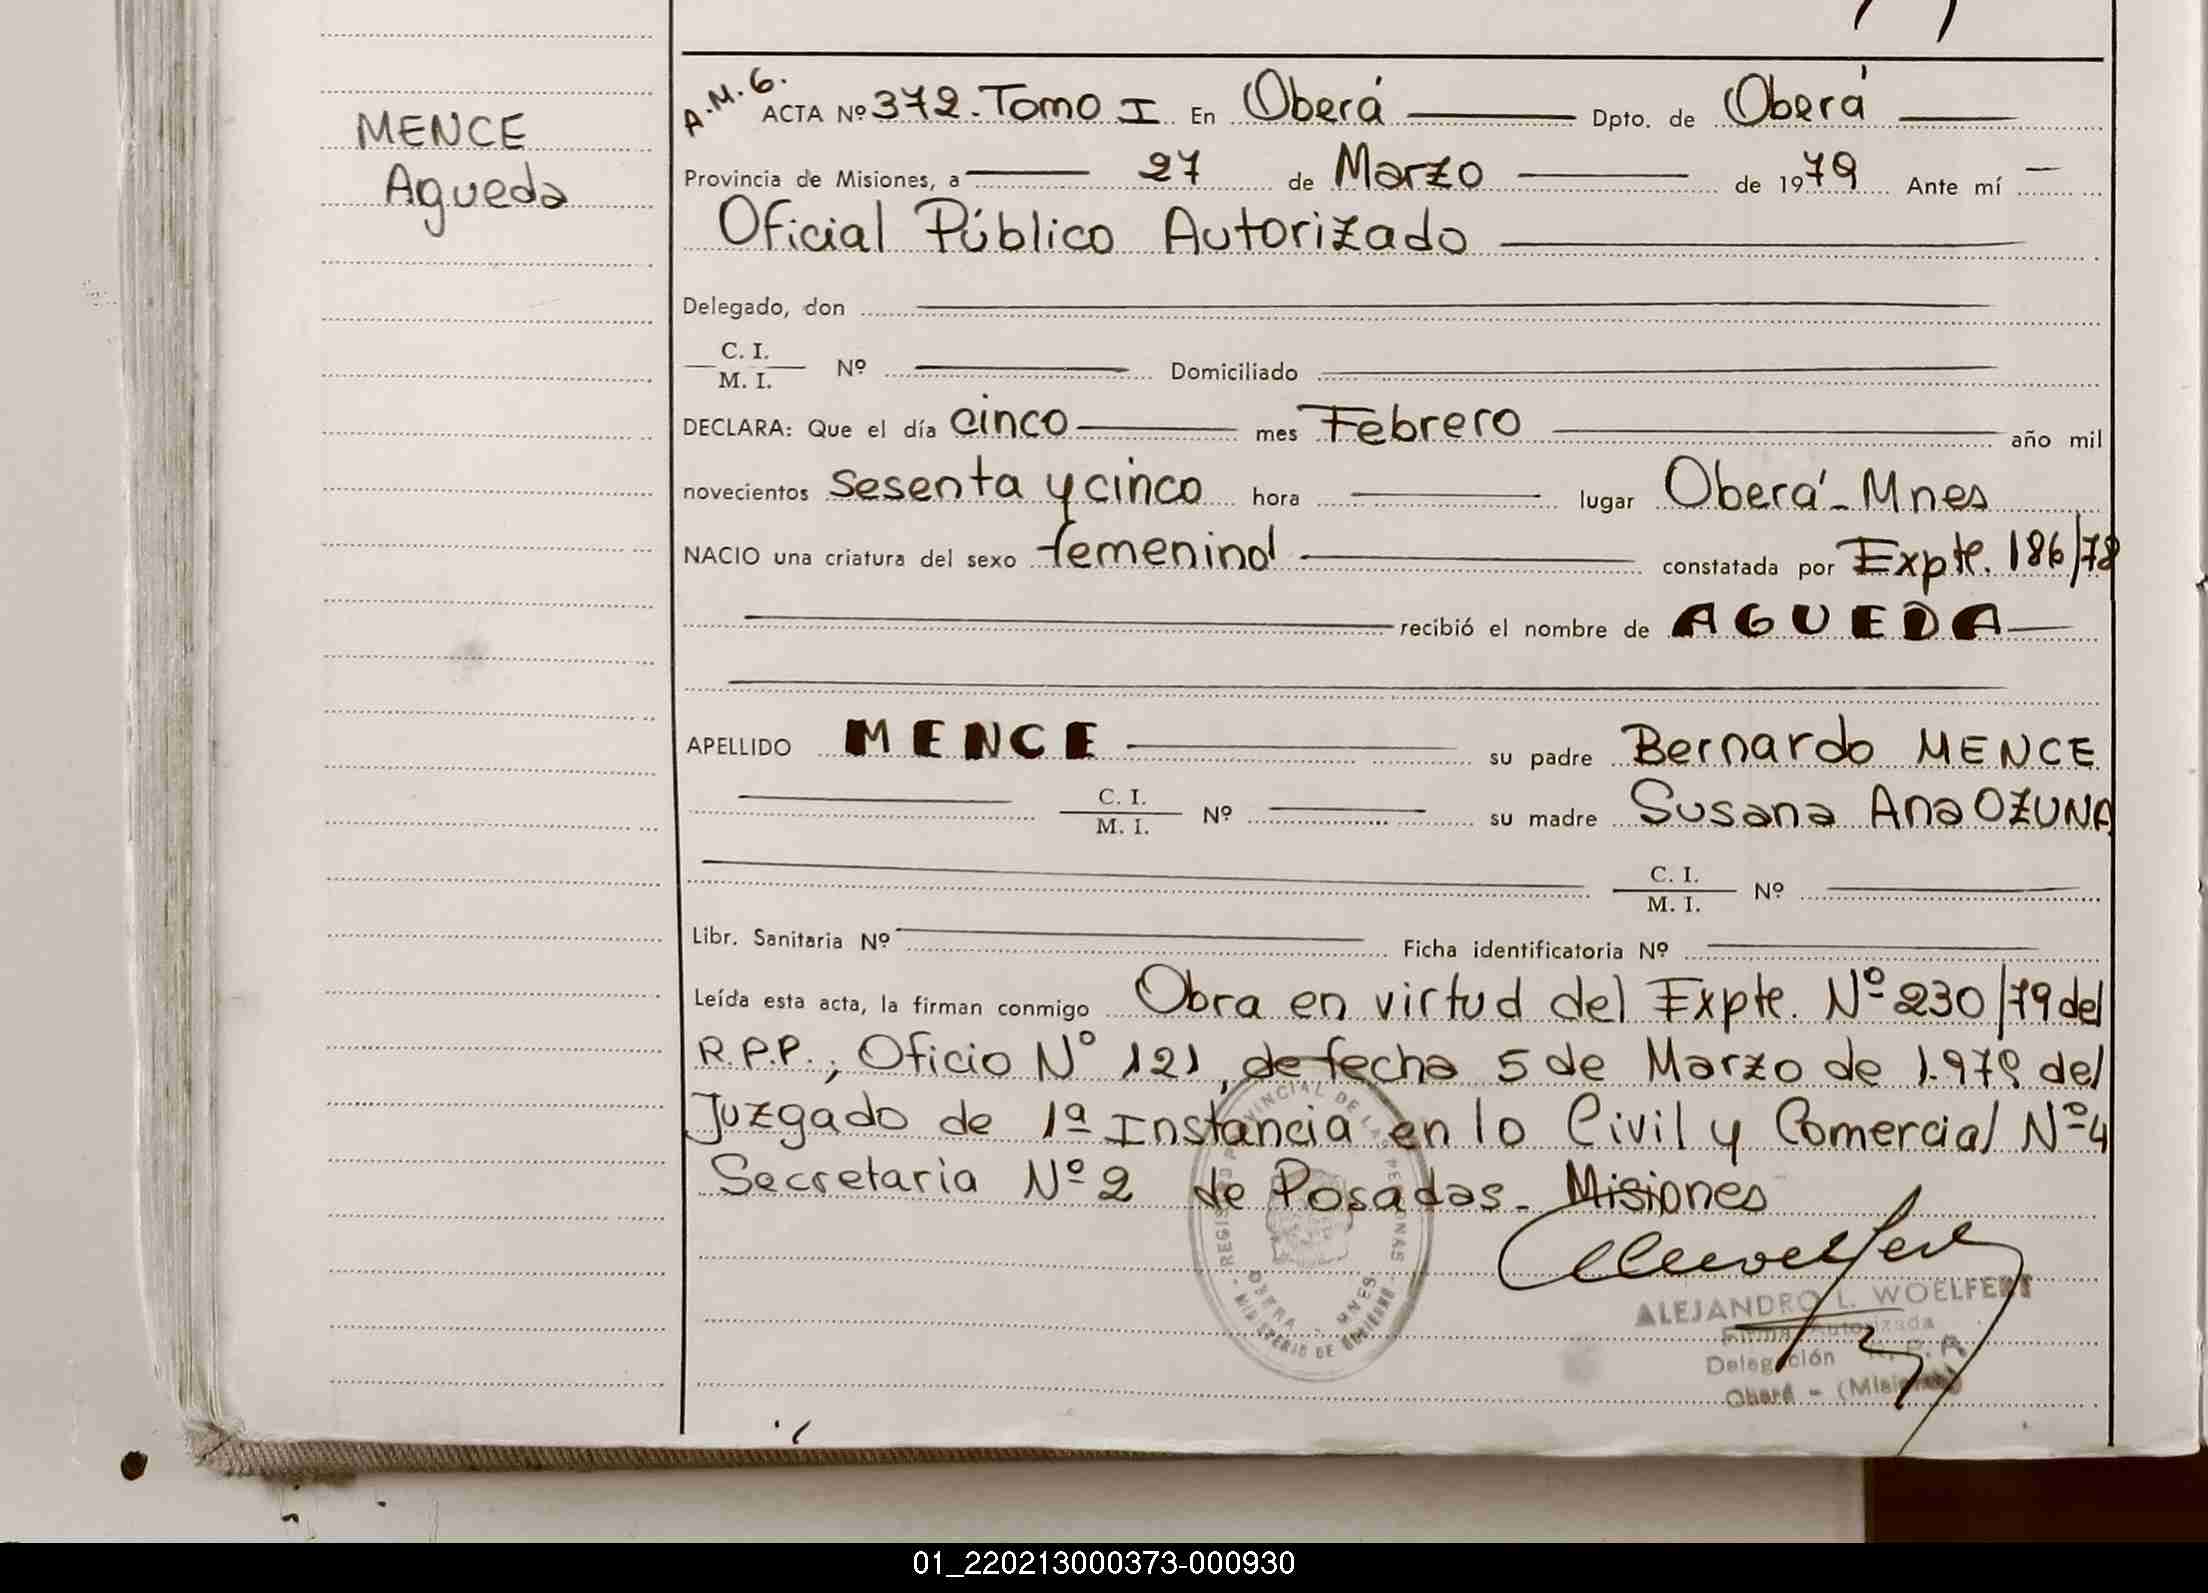 MENCE
Agueda
A.M.G.
ACTA Nº 372. Tomo I En Oberá Dpto. de Oberá
Provincia de Misiones, a 27 de Marzo de 1979 Ante mí
Oficial Público Autorizado
Delegado, don
C. I.
M. I. Nº Domiciliado
DECLARA: Que el día cinco mes Febrero año mil
novecientos sesenta y cinco hora lugar Oberá - Mnes
NACIO una criatura del sexo femenino constatada por Expte. 186/78
recibió el nombre de AGUEDA
APELLIDO MENCE su padre Bernardo MENCE
C. I.
M. I. Nº su madre Susana Ana OZUNA
C. I.
M. I. Nº
Libr. Sanitaria Nº Ficha identificatoria Nº
Leída esta acta, la firman conmigo Obra en virtud del Expte. Nº 230/79 del
R.P.P., Oficio Nº 121, de fecha 5 de Marzo de 1.979 del
Juzgado de 1ª Instancia en lo Civil y Comercial Nº 4
Secretaria Nº 2 de Posadas - Misiones
REGISTRO PROVINCIAL DE LAS PERSONAS
OBERA - MNES
MINISTERIO DE GOBIERNO
ALEJANDRO L. WOELFERT
Firma Autorizada
Delegación R. P.
Oberá - (Misiones)
01_220213000373-000930